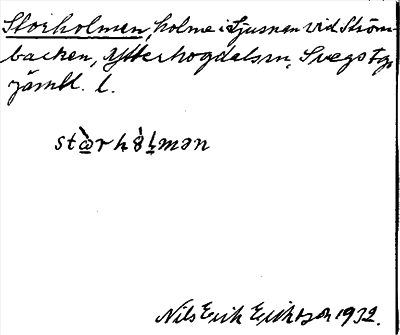 Storholmen, holme i Ljusnan vid Ström-
backen, Ytterhogdals sn, Svegs tg,
jämtl. l.
stὰ̱rhὸ̱lmən
Nils Erik Eriksson 1932.